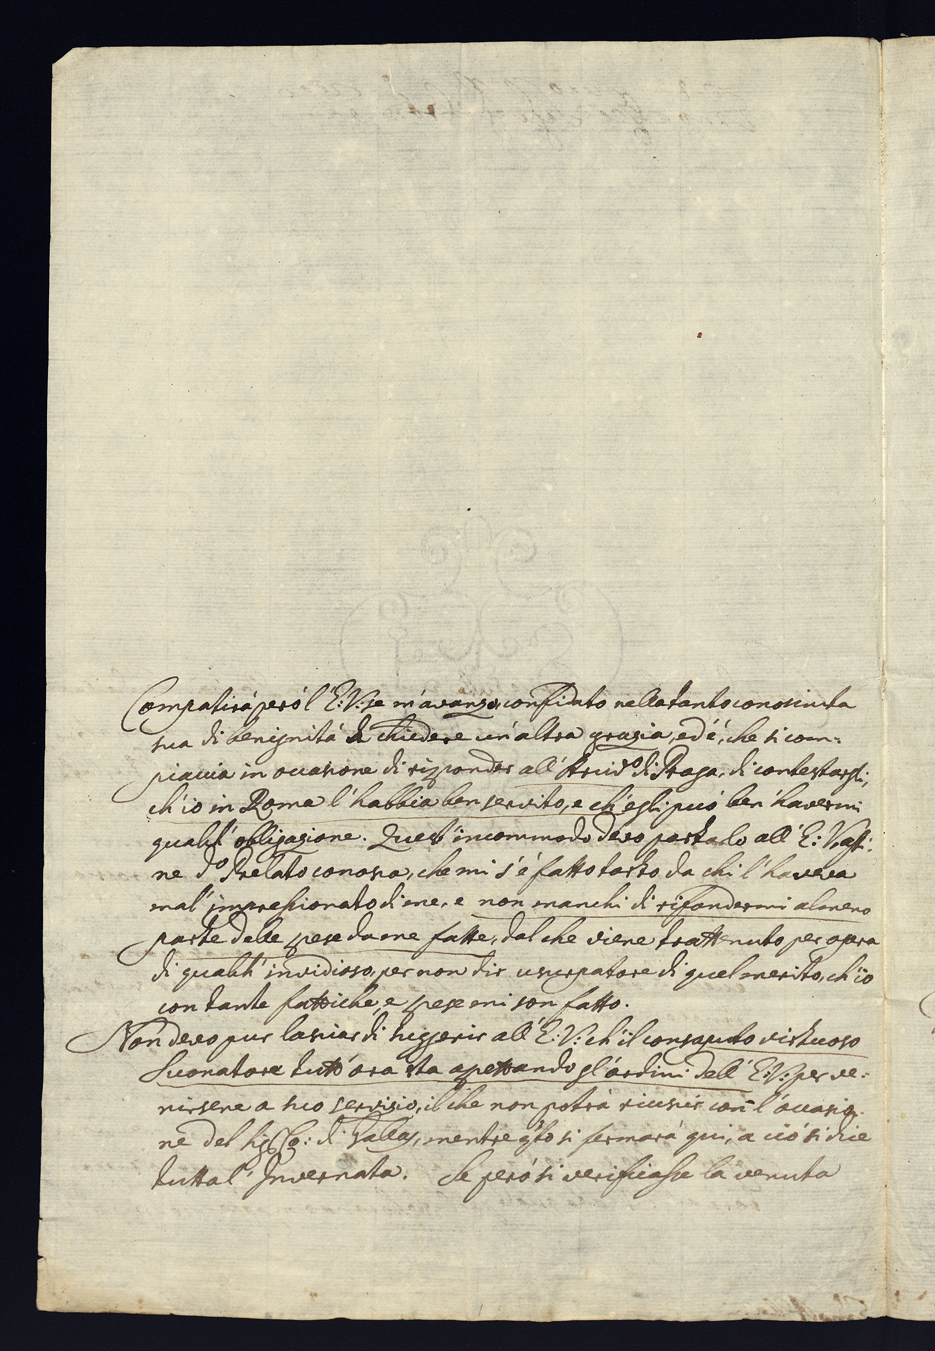 Compatirá peró l'E: V: se m'avanzo confidato nella tanto conosciuta
sua di benignitá di chiedere un'altra grazia, ed é, che si com=
piaccia in occasione di risponder all'Arcid.o di Praga, di contestargli,
ch'io in Roma l'habbia ben servito, e ch'egli puó ben' havermi
qualch' obbligazione. Quest'incommodo devo portarlo all'E: V: affi=
ne d.o Prelato conosca, che mi s'é fatto torto da chi l'haveva
mal' impressionato di me, e non manchi di rifondermi almeno
parte delle spese da me fatte, dal che viene trattenuto per opera
di qualch' invidioso, per non dir usurpatore di quel merito, ch'io
con tante fattiche, e spese mi son fatto.
Non devo pur lasciar di suggerir all'E: V: ch'il consaputo virtuoso
Suonatore tutt'ora sta aspettando gl'ordini dell'E: V: per ve=
nirsene a suo servizio, il che non potrá riuscir con l'occasio=
ne del di Gallas, mentre q'sto si fermará qui, a ció si dice
tutta l'Invernata. Se peró si verificasse la venuta